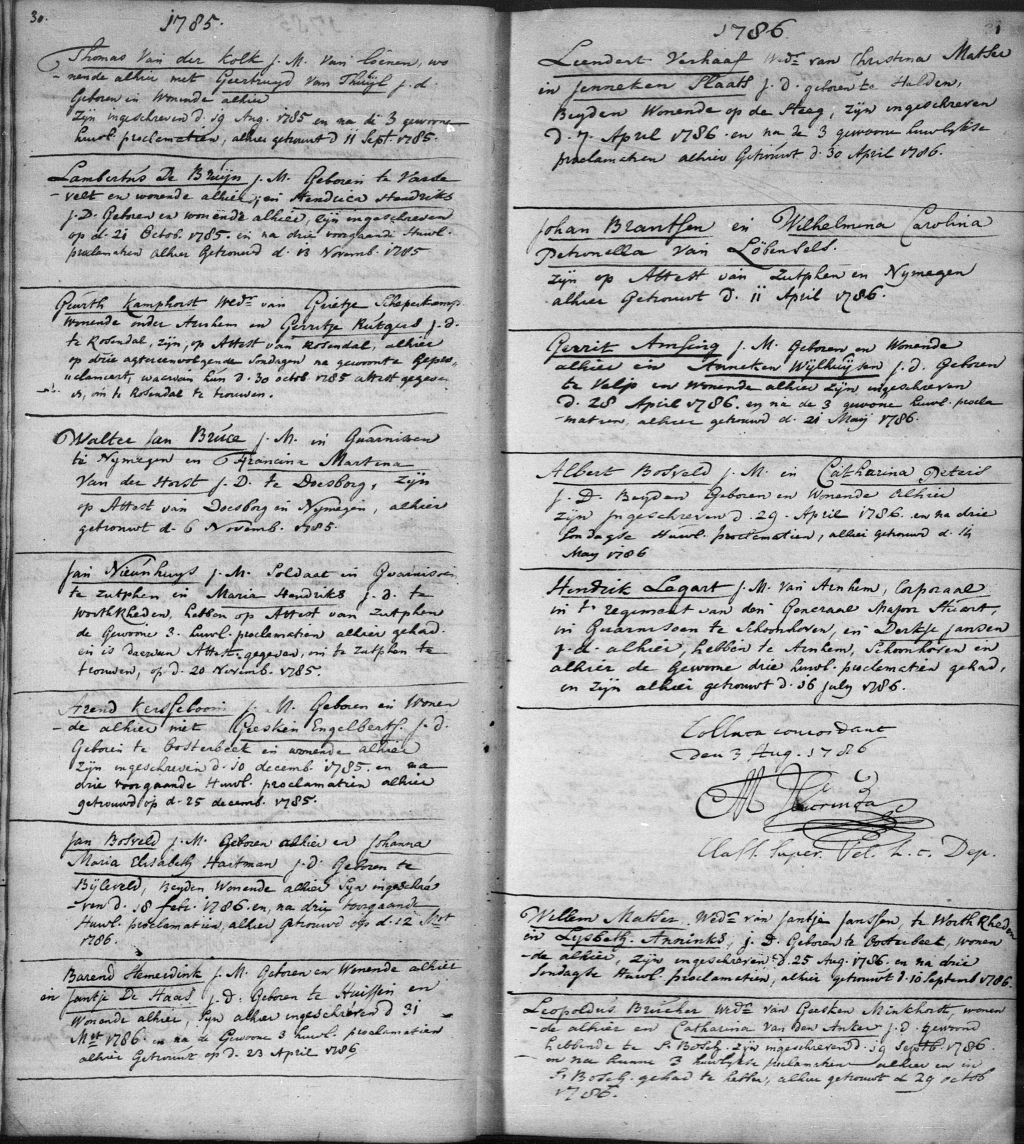 30.
1785.
Thomas Van der Kolk j. M. van Loenen, wo
-nende alhier met Geertruyd Van Thuyl j. d.
Geboren in Wonende alhier
zijn ingeschreven d. 19 Aug. 1785 en na de 3 gewoone
huwl. proclamatien, alhier getrouwt d 11 Sept. 1785.
Lambertus De Bruyn j. M. Geboren te Varde
-velt en wonende alhier, en Hendrica Hendriks
j. D. Geboren en wonende alhier, zijn ingeschreven
op d. 21 Octob. 1785. en na drie voorgaande Huwl.
proclamatien alhier Getrouwd d. 13 Novemb. 1785
Geurth Kamphorst Wedr van Grietje Scheperkamp
Wonende onder Arnhem en Gerritje Rutgers j. d.
te Rosendal, zijn, op Attest van Rosendal, alhier
op drie agtereenvolgende Sondagen na gewoonte Gepro
-clameert, waarvan hun d. 30 octob 1785 attest gegeven
is, om te Rosendal te trouwen.
Walter Jan Bruce j. M. in Guarnisoen
te Nymegen en Francina Martina
Van der Horst j. D. te Doesborg, zijn
op Attest van Doesborg en Nymegen, alhier
getrouwt d. 6 Novemb. 1785.
Jan Nieunhuys j. M. Soldaat in Guarnisoen
te Zutphen en Maria Hendriks j. d. te
Worthkheden, hebben op Attest van Zutphen
de Gewoone 3. huwl. proclamatien alhier gehad
en is daarvan Attest gegeven, om te Zutphen te
trouwen, op d. 20 Novemb. 1785.
Arend Kersseboom j. M. Geboren en Wonen
-de alhier met Geesken Engelberts. j. d.
Geboren te Oosterbeek en wonende alhier
zijn ingeschreven d. 10 decemb. 1785. en na
drie voorgaande Huwl. proclamatien alhier
getrouwd op d. 25 decemb. 1785.
Jan Bosveld j. M. Geboren alhier en Johanna
Maria Elisabeth Hartman j. d. Geboren te
Byleveld, Beyden Wonende alhier Zyn ingeschre
-ven d. 18 feb. 1786. en, na drie voorgaande
Huwl. proclamatien, alhier getrouwd op d. 12 Mrt
1786.
Barend Hemerdink j. M. Geboren en Wonende alhier
en Jantje De Haas j. d. Geboren te Huissen en
Wonende alhier, Zyn alhier ingeschreven d 31
Mrt 1786. en na de Gewoone 3 huwl. proclamatien
alhier Getrouwt op d. 23 April 1786
31
1786
Leendert Verhaaf Wedr van Christina Matser
en Jenneken Plaats j. d. geboren te Halden,
Beyden Wonende op de Steeg, zijn ingeschreven
d. 7. April 1786. en na de 3 gewoone huwlykse
proclamatien alhier Getrouwt d. 30 April 1786.
Johan Brantsen en Wilhelmina Carolina
Petronella Van Löbensels.
zijn op Attest van Zutphen en Nymegen
alhier Getrouwt d. 11 April 1786.
Gerrit Amsing j. M. Geboren en Wonende
alhier en Anneken Wylhuysen j. d. Geboren
te Velp en Wonende alhier zijn ingeschreven
d. 28 April 1786. en na de 3 gewone huwl. procla
-matien, alhier getrouwd d. 21 Maij 1786.
Albert Bosveld j. M. en Catharina Peters
j. D. Beyden Geboren en Wonende Alhier
zijn Ingeschreven d. 29. April 1786. en na drie
Sondagse Huwl. proclamatien, alhier getrouwd d. 14
May 1786
Hendrik Legart j. M. van Arnhem, Corporaal
in 't regiment van den Generaal Majoor Stuart,
in Guarnisoen te Schoonhoven, en Derkje Jansen
j. d. alhier, hebben te Arnhem, Schoonhoven en
alhier de Gewone drie huwl. proclamatien gehad,
en zijn alhier getrouwt d. 16 July 1786.
Collata concordant
den 3 Aug. 1786
Class. Super. Vel. h. t. Dep.
Willem Matser, Wedr van Jantje Janssen, te Worthkheden
en Lysbeth Anninks, j. D. Geboren te Oosterbeek, wonen
-de alhier, zijn ingeschreven d. 25 Aug. 1786. en na drie
Sondagse Huwl. proclamatien, alhier getrouwt d. 10 Septemb 1786.
Leopoldus Brucher Wedr van Geesken Minkhorst, wonen
-de alhier en Catharina Van den Anker j. d. gewoond
hebbende te S. Bosch. zijn ingeschreven d. 19 Septb. 1786.
en na hunne 3 huwlykse proclamatien alhier en in
S. Bosch. gehad te hebben, alhier getrouwt d 29 octob
1786.